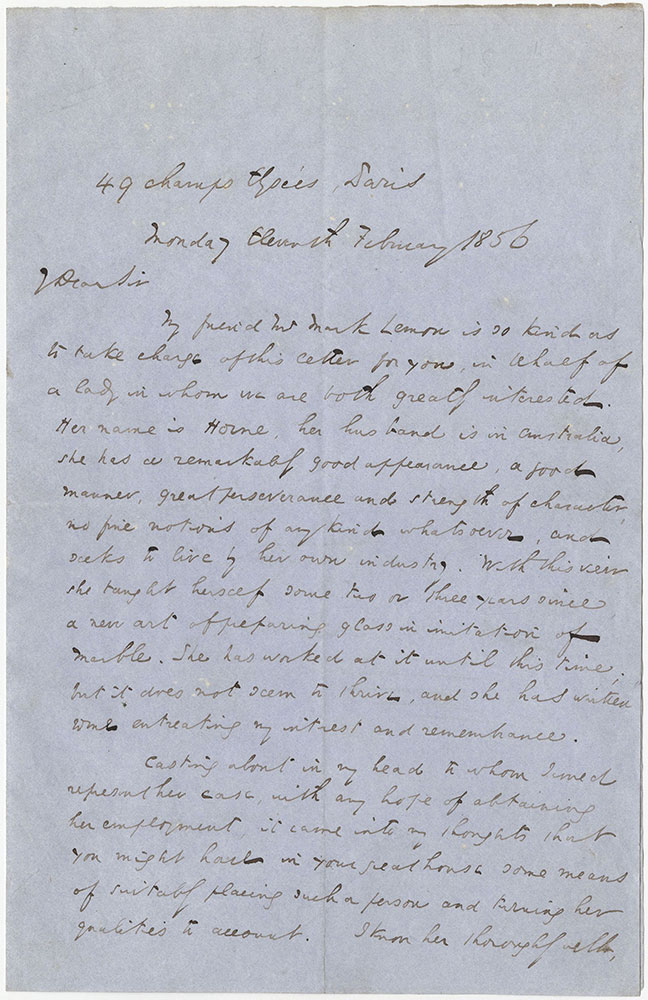 49 Champs Elysées, Paris
Monday Eleventh February 1856
Dear Sir
My friend Mr Mark Lemon is so kind as
to take charge of this letter for you, in behalf of
a lady in whom we are both greatly interested.
Her name is Horne, her husband is in Australia,
she has a remarkably good appearance, a good
manner, great perseverance and strength of character,
no fine notions of any kind whatsoever, and
seeks to live by her own industry. With this view
she taught herself some two or three years since
a new art of preparing glass in imitation of
marble. She has worked at it until this time,
but it does not seem to thrive, and she has written
to me entreating my interest and remembrance.
Casting about in my head to whom I could
represent her case, with any hope of obtaining
her employment, it came into my thoughts that
you might have in your great house some means
of suitably placing such a person and turning her
qualities to account. I know her thoroughly well,